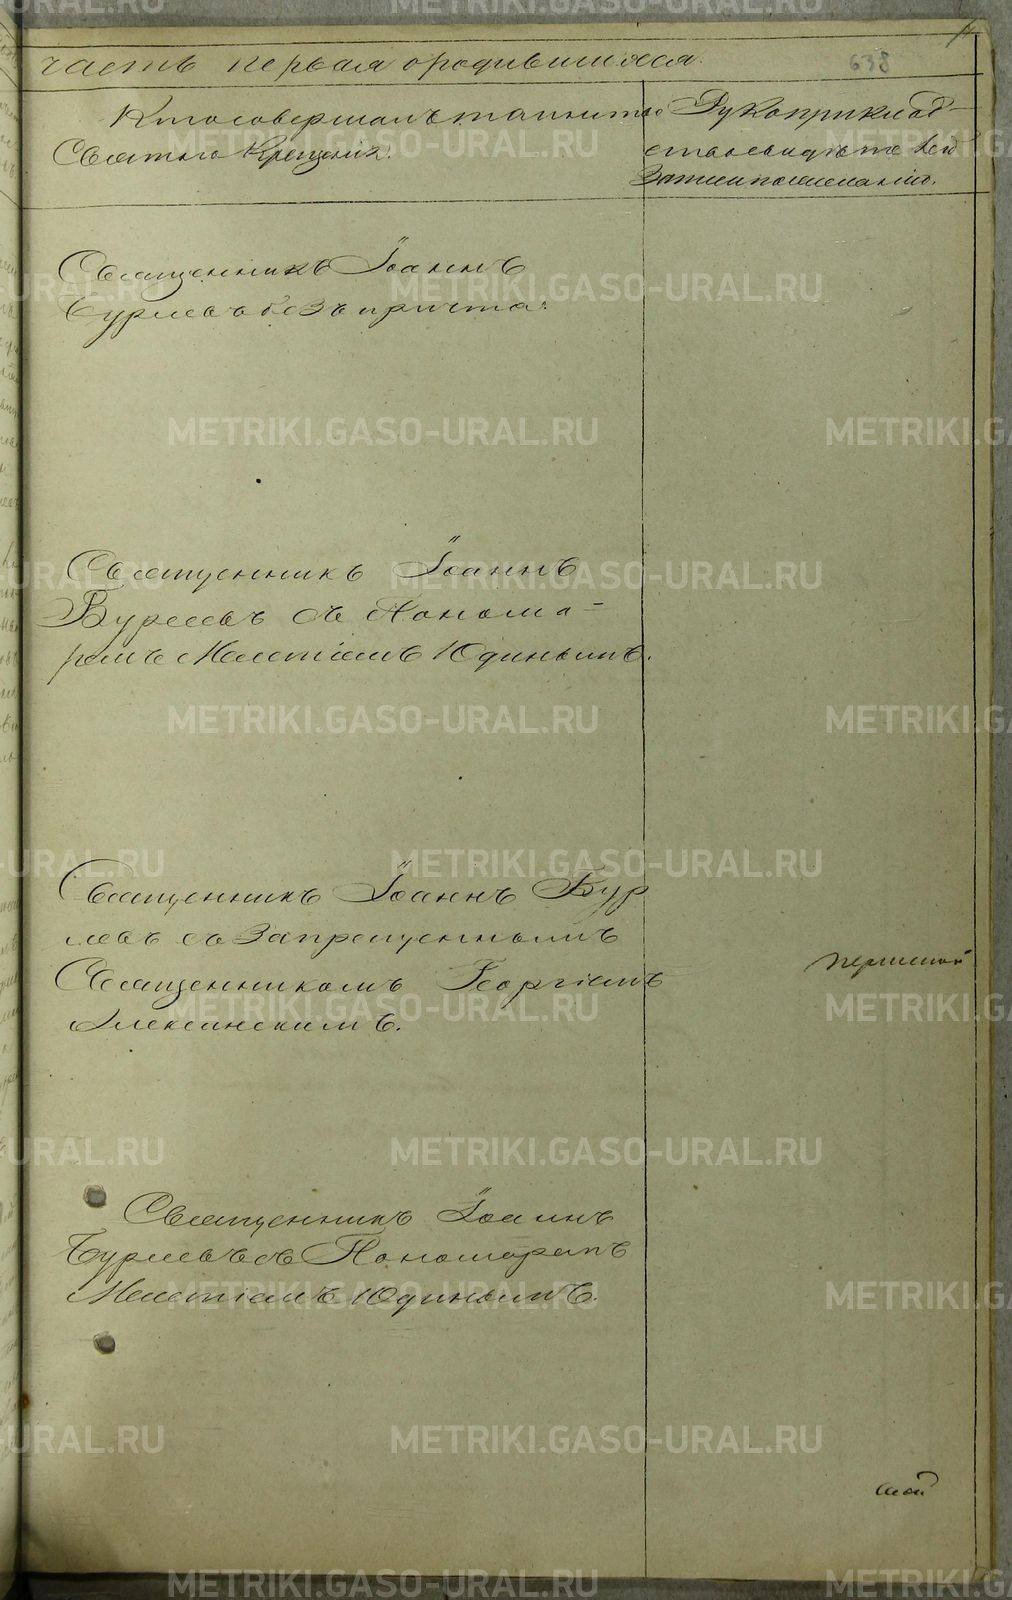 часть первая о родившихся.
638
Кто совершалъ таинство
Святаго Крещенія.
Рукоприклад-
ство свидѣтелей
Записи по желанію.
Священникъ Іоаннъ
Бурлевъ безъ причта.
Священникъ Іоаннъ
Бурлевъ съ Понома-
ремъ Мелетіемъ Юдинымъ.
Священникъ Іоаннъ Бур
левъ со Запрещеннымъ
Священникомъ Георгіемъ
Алексинскимъ.
Священникъ Іоаннъ
Бурлевъ съ Пономаремъ
Мелетіемъ Юдинымъ.
METRIKI.GASO-URAL.RU